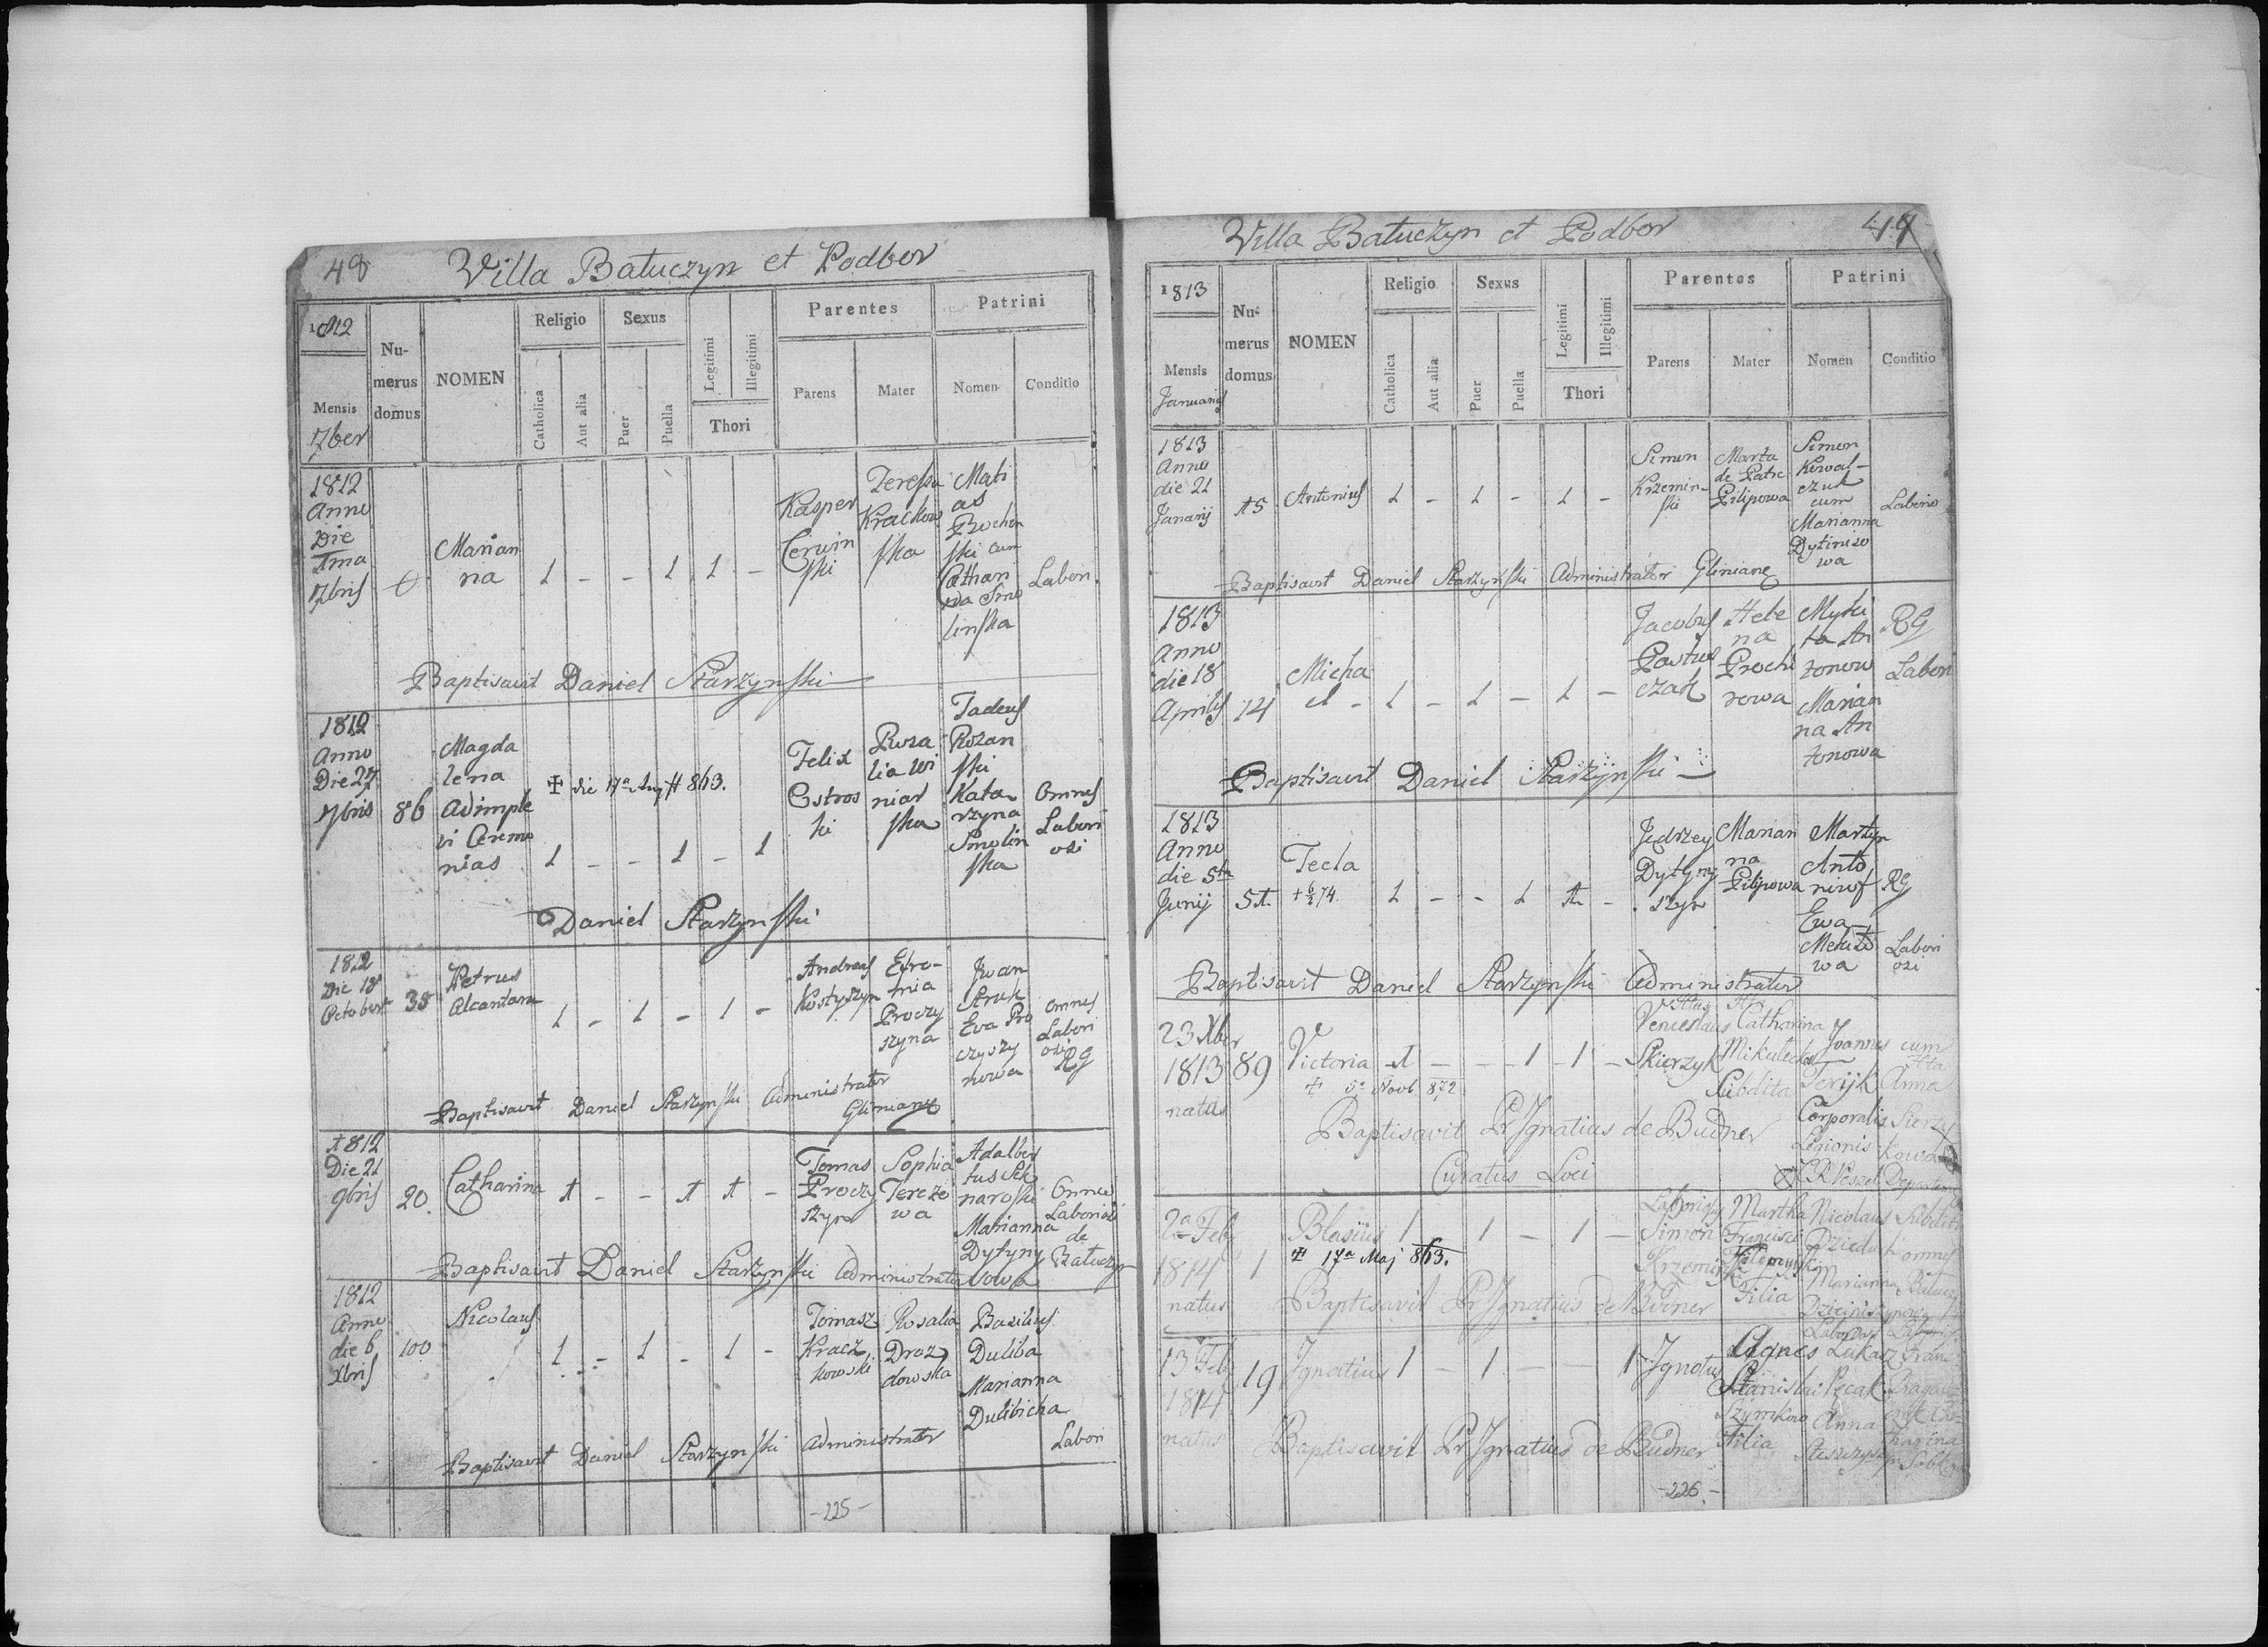 48
Villa Batuczyn et Podbor
1812
Mensis
7ber
Numerus domus
NOMEN
Religio
Catholica
Aut alia
Sexus
Puer
Puella
Legitimi
Illegitimi
Thori
Parentes
Parens
Mater
Patrini
Nomen
Conditio
1812
Anno
Die
7bris
Marian
na
1 - - 1 1 -
Kasper
Cerwin
ski
Teressa
Krackow
ska
Mati
as
cum
Cathari
na Smo
linska
Labori
Baptisavit Daniel Starzynski
1812
Anno
Die 27
7bris
86
Magda
lena
Adimple
vi Ceremo
nias
✝ die 17a Aug 863.
1 - - 1 - 1
Felix
Ostros
ki
Roza
lia Wi
niar
ska
Tadeus
Rozan
ski
Kata
rzyna
Smolin
ska
Omnes
Labori
osi
Daniel Starzynski
1812
Die 18
October
38
Petrus
Alcantara
1 - 1 - 1 -
Andreas
Kostyszyn
Efro-
nia
Proczy
szyna
Jwan
Struk
Eva Pro
czyszy
nowa
Omnes
Labori
osi
RG
Baptisavit Daniel Starzynski Administrator
Gliniany
1812
Die 21
9bris
20.
Catharina
1 - - 1 1 -
Tomas
Proczy
szyn
Sophia
Tereze
wa
Adalber
tus Sek
naroski
Marianna
Dytyny
Omnes
Laboriosi
de
Batuczyn
Baptisavit Daniel Starzynski Administrator
1812
Anno
die 6
Xbris
100
Nicolaus
1 - 1 - 1 -
Tomasz
Kracz
kowski
Rosalia
Droz
dowska
Basilius
Duliba
Marianna
Dulibicha
Labori
Baptisavit Daniel Starzynski Administrator
-225-
Villa Batuczyn et Podbor
49
1813
Mensis
Januarij
Numerus domus
NOMEN
Religio
Catholica
Aut alia
Sexus
Puer
Puella
Legitimi
Illegitimi
Thori
Parentes
Parens
Mater
Patrini
Nomen
Conditio
1813
Anno
die 21
Janarij
15
Antonius
1 - 1 - 1 -
Simon
Krzemin-
ski
Marta
de Patre
Pilipowa
Simon
Kowal-
czuk
cum
Marianna
Dytiniso
wa
Laborio
Baptisavit Daniel Starzynski Administrator Gliniane
1813
Anno
die 18
Aprilis
14
Micha
el - 1 - 1 - 1 -
Jacobus
Pastus
czak
Hele
na
Prochi
rowa
Myki
ta An
tonow
Marian
na An
tonowa
RG
Labori
Baptisavit Daniel Starzynski
1813
Anno
die 5ta
Junij
51.
Tecla
1 - - 1 1 -
Jedrzey
Dytyny
szyn
Marian
na
Pilipowa
Martyn
Anto
niwf
Ewa
wa
RG
Labori
osi
Baptisavit Daniel Starzynski Administrator
23 Xber
1813
natus
89
Victoria
✝ 5a Novb. 872
1 - - 1 1 -
Venceslaus
Skierzyk
Catharina
Subdita
Joannes cum
Anna
Corporalis
Legionis
Baptisavit Pr Jgnatius de Budner
Curatus Loci
2a Feb
1814
natus
1
Blasius
✝ 17a Maj 863.
1 1 - 1 -
Simon
Martha
Francisci
Filia
Nicolaus
Marianna
Baptisavit Pr Jgnatius de Budner
13 Feb
1814
natus
19
Jgnatius
1 - 1 - - 1
Jgnotus
Agnes
Stanislai
Filia
Lukasz
Anna
Baptisavit Pr Jgnatius de Budner
-226-